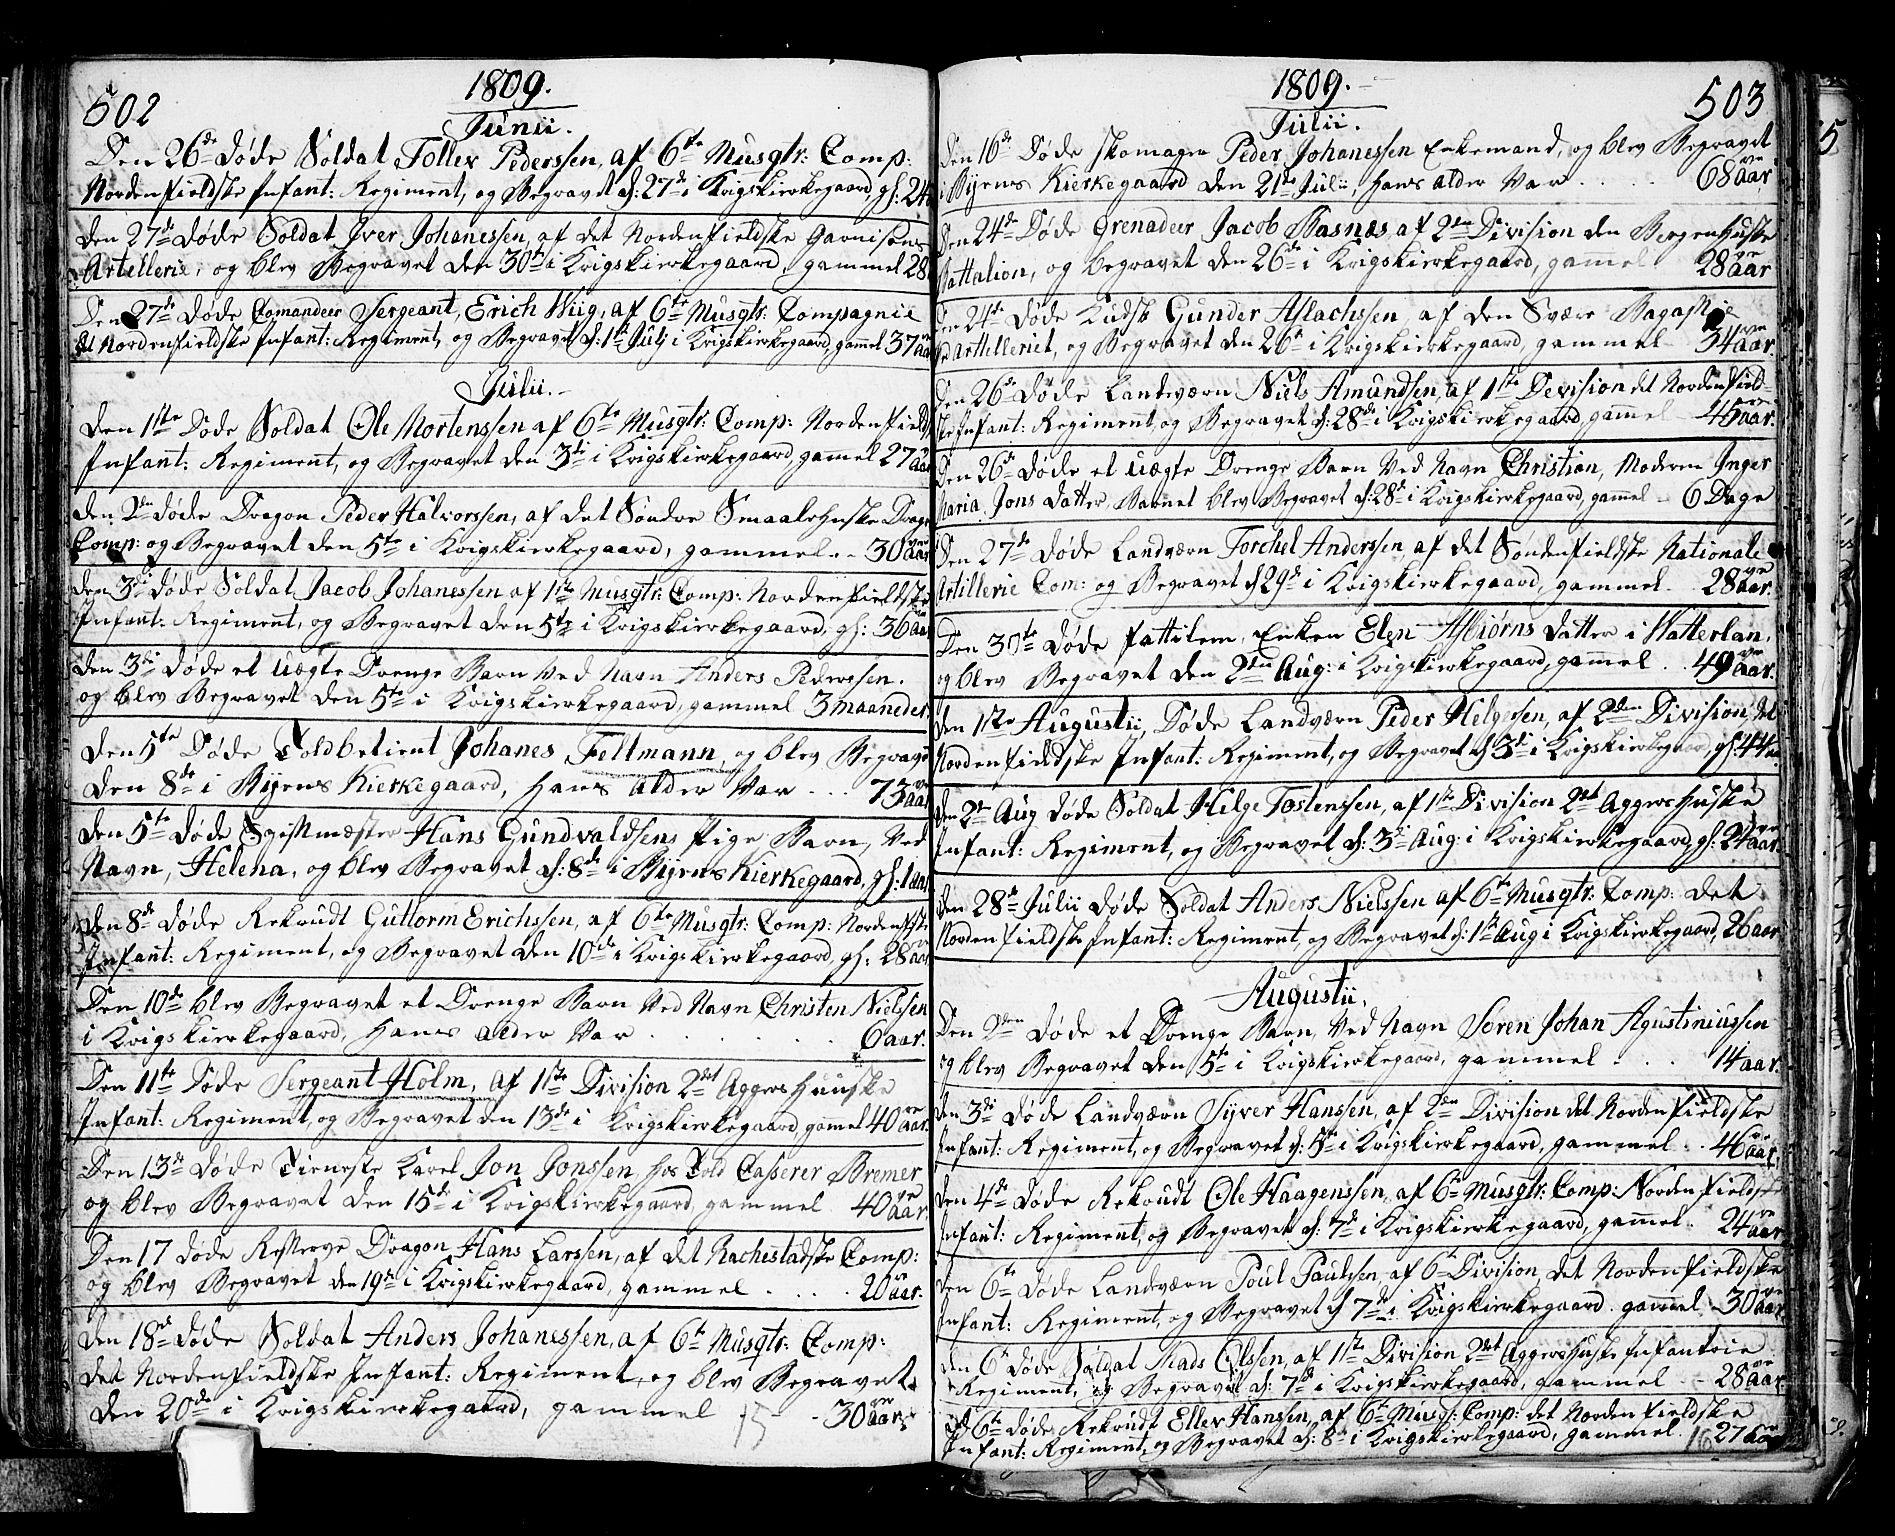 502
1809.
Junii.
Den 26de Døde Soldat Tollev Pederssen, af 6te Musqtr: Comp:
Nordenfieldske Infant: Regiment, og Begravet d: 27de i Krigskirkegaard, gl: 24
Den 27de Døde Soldat Iver Johanessen, af det Nordenfieldske Garnisons
Artellerie, og blev Begravet den 30te i Krigskirkegaard, gammel 28
Den 27de Døde Comandeer Sergeant, Erich Wiig, af 6te Musqtr: Compagnie
det Nordenfieldske Infant: Regiment, og Begravet d: 1ste Julj i Krigskirkegaard, gammel 37 aar
Julii.
Den 1ste Døde Soldat Ole Mortenssen af 6te Musqtr: Comp: Nordenfields
Infant: Regiment, og Begravet den 3di i Krigskirkegaard, gammel 27 aar
Den 2den Døde Dragon Peder Halvorssen, af det Søndre Smaalehnske Drag
Comp: og Begravet den 5te i Krigskirkegaard, gammel .. 30 aar
Den 3di Døde Soldat Jacob Johanessen af 1ste Musqtr: Comp: Nordenfieldske
Infant: Regiment, og Begravet den 5te i Krigskirkegaard, gl: 36 aar
Den 3di Døde et uægte Drenge Barn Ved Navn Anders Pederssen.
og blev Begravet den 5te i Krigskirkegaard, gammel 3 maaneder.
Den 5te Døde Toldbetient Johanes Feltmann, og blev Begravet
Den 8de i Byens Kierkegaard, Hans Alder Var ... 73 aar
Den 5te Døde Spissmæster Hans Gundvaldsens Pige Barn, Ved
Navn, Helena, og blev Begravet d: 8de i Byens Kierkegaard, gl: 1 aar
Den 8de Døde Rekrudt Guttorm Erichssen, af 6te Musqtr: Comp: Nordenfieldske
Infant: Regiment, og Begravet den 10de i Krigskirkegaard, gl: 28 aar
Den 10de blev Begravet et Drenge Barn Ved Navn Christen Nielssen
i Krigskirkegaard, Hans Alder Var . . . . 6 aar.
Den 11te Døde Sergeant Holm, af 1ste Division 2det Aggershuuske
Infant: Regiment, og Begravet den 13de i Krigskirkegaard, gamel 40 aar.
Den 13de Døde Tieneste Karel Jon Jonssen, hos Told Casserer Bremer
og blev Begravet den 15de i Krigskirkegaard, gammel 40 aar.
Den 17 Døde Resserve Dragon Hans Larssen, af det Rachestadske Comp:
og blev Begravet den 19de i Krigskirkegaard, gammel . . . . 20 aar.
Den 18de Døde Soldat Anders Johanessen, af 6te Musqtr: Comp:
det Nordenfieldske Infant: Regiment, og blev Begravet
den 20de i Krigskirkegaard, gammel 15 - 30 aar
503
1809.
Julii.
Den 16de Døde Skomager Peder Johanessen Enkemand, og blev Begravet
i Byens Kierkegaard den 21de Julii, Hans Alder Var . . . . . 68 aar
Den 24de Døde Grenadeer Jacob Basnæs af 2den Division den Bergenhuske
Battalion, og begravet den 26de i Krigskirkegaard, gammel 28 aar
Den 24de Døde Kudsk Gunder Aslachssen, af den Svære Bagasie
ved Artilleriet, og Begravet den 26de i Krigskirkegaard, gammel 34 aar.
Den 26de Døde Landværn Niels Amundsen, af 1ste Devision det Nordenfield-
ske Infant: Regiment, og Begravet d: 28de i Krigskirkegaard, gammel 45 aar.
Den 26de Døde et uægte Drenge Barn Ved Navn Christian, Moderen Inger
Maria Jons Datter, Barnet blev Begravet d: 28de i Krigskirkegaard, gammel 6 Dage
Den 27de Døde Landværn Torchel Anderssen, af det Søndenfieldske Nationale
Artillerie Com: og Begravet d: 29de i Krigskirkegaard, gammel 28 aar.
Den 30te Døde Fattilem, Enken Elen Asbiørns Datter i Watterlan,
og blev Begravet den 2den Aug: i Krigskirkegaard, gammel . 49 aar.
Den 1ste Augustii, Døde Landværn Peder Helgesen, af 2den Division, det
Nordenfieldske Infant: Regiment, og Begravet d: 3di i Krigskirkegaard, gl: 44 aar
Den 2den Aug Døde Soldat Helge Tostenssen, af 1ste Division 2det Aggershuske
Infant: Regiment, og Begravet d: 3di Aug: i Krigskirkegaard, gl: 24 aar.
Den 28de Julii Døde Soldat Anders Nielssen af 6te Musqtr: Comp: det
Nordenfieldske Infant: Regiment, og Begravet d: 1ste Aug i Krigskirkegaard, 26 aar
Augustii.
Den 2den Døde et Drenge Barn, Ved Navn Søren Johan Agustiniussen
og blev Begravet den 5te i Krigskirkegaard, gammel . . . . 14 aar.
Den 3di Døde Landværn Syver Hanssen, af 2den Division det Nordenfieldske
Infant: Regiment, og Begravet d: 5te i Krigskirkegaard, gammel . . 46 aar.
Den 4de Døde Rekrudt Ole Haagenssen, af 6te Musqtr: Comp: Nordenfieldsk
Infant: Regiment, og Begravet d: 7de i Krigskirkegaard, gammel . 24 aar
Den 6te Døde Landværn Poul Paulssen, af 6te Division, det Nordenfieldske
Infant: Regiment, og Begravet d 7de i Krigskirkegaard. gammel 30 aar
Den 6te Døde Soldat Mads Olssen, af 1ste Division 2det Aggershuske Infanterie
Regiment, og Begravet d: 7de i Krigskirkegaard, gammel . - 28 aar.
d 6te Døde Rekrudt Ellev Hanssen, af 6te Musq: Comp: det Nordenfieldske
Infant: Regiment, og Begravet d: 8de i Krigskirkegaard, gammel. 16 27 aar